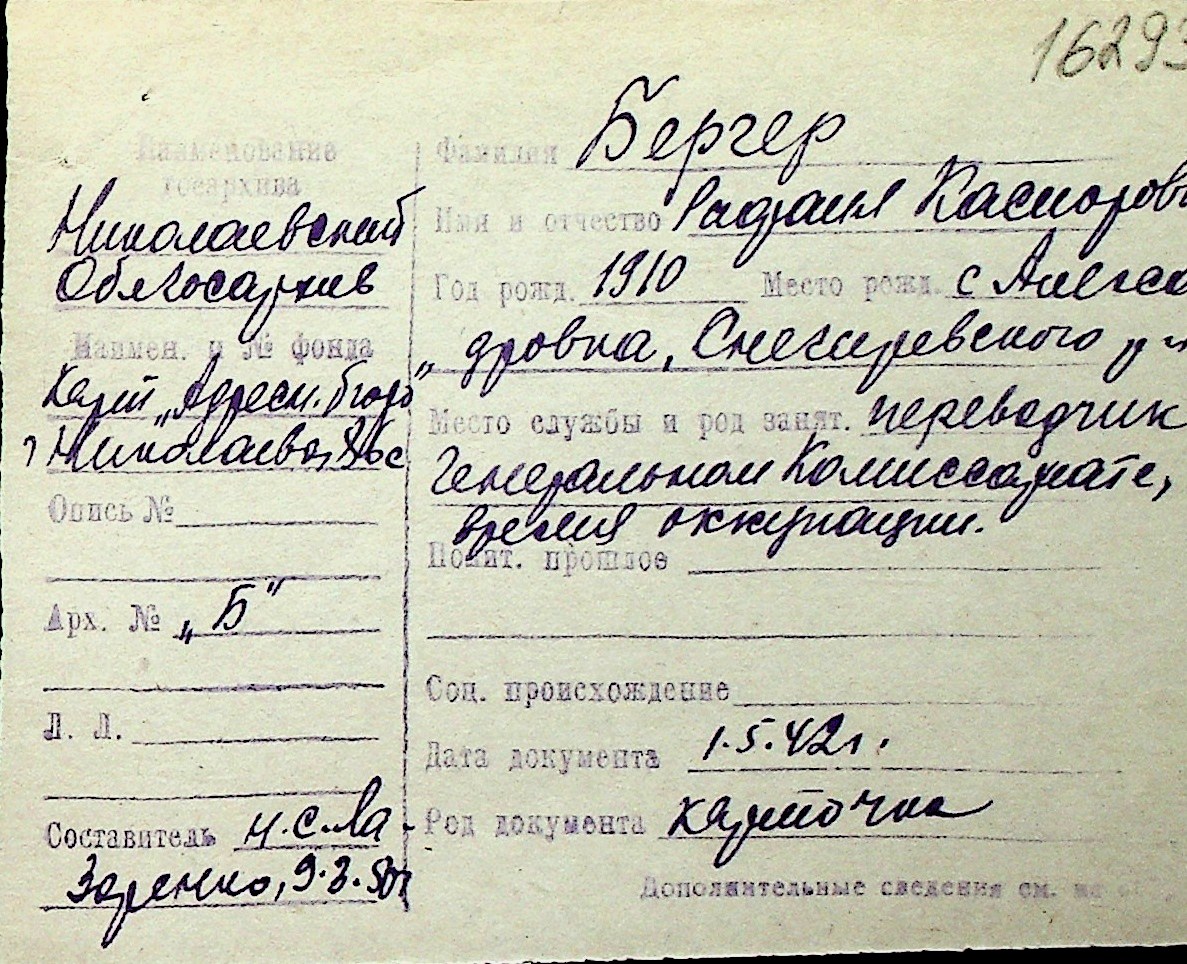 16293
Наименование
госархива
Николаевский
Облгосархив
Наимен. и № фонда
Карт. „Адресн. бюро"
г Николаева,
Опись №
Арх. № „Б"
Л. Л.
Составитель Н.С.Ла-
заренко, 9.3.50г
Фамилия Бергер
Имя и отчество Рафаил Каспоров
Год рожд. 1910 Место рожд. с Алекса
дровка, Снегиревского
Место службы и род занят. переводчик
Генеральном Комиссариате,
время оккупации.
Полит. прошлое
Соц. происхождение
Дата документа 1.5.42г.
Род документа карточка
Дополнительные сведения см. на